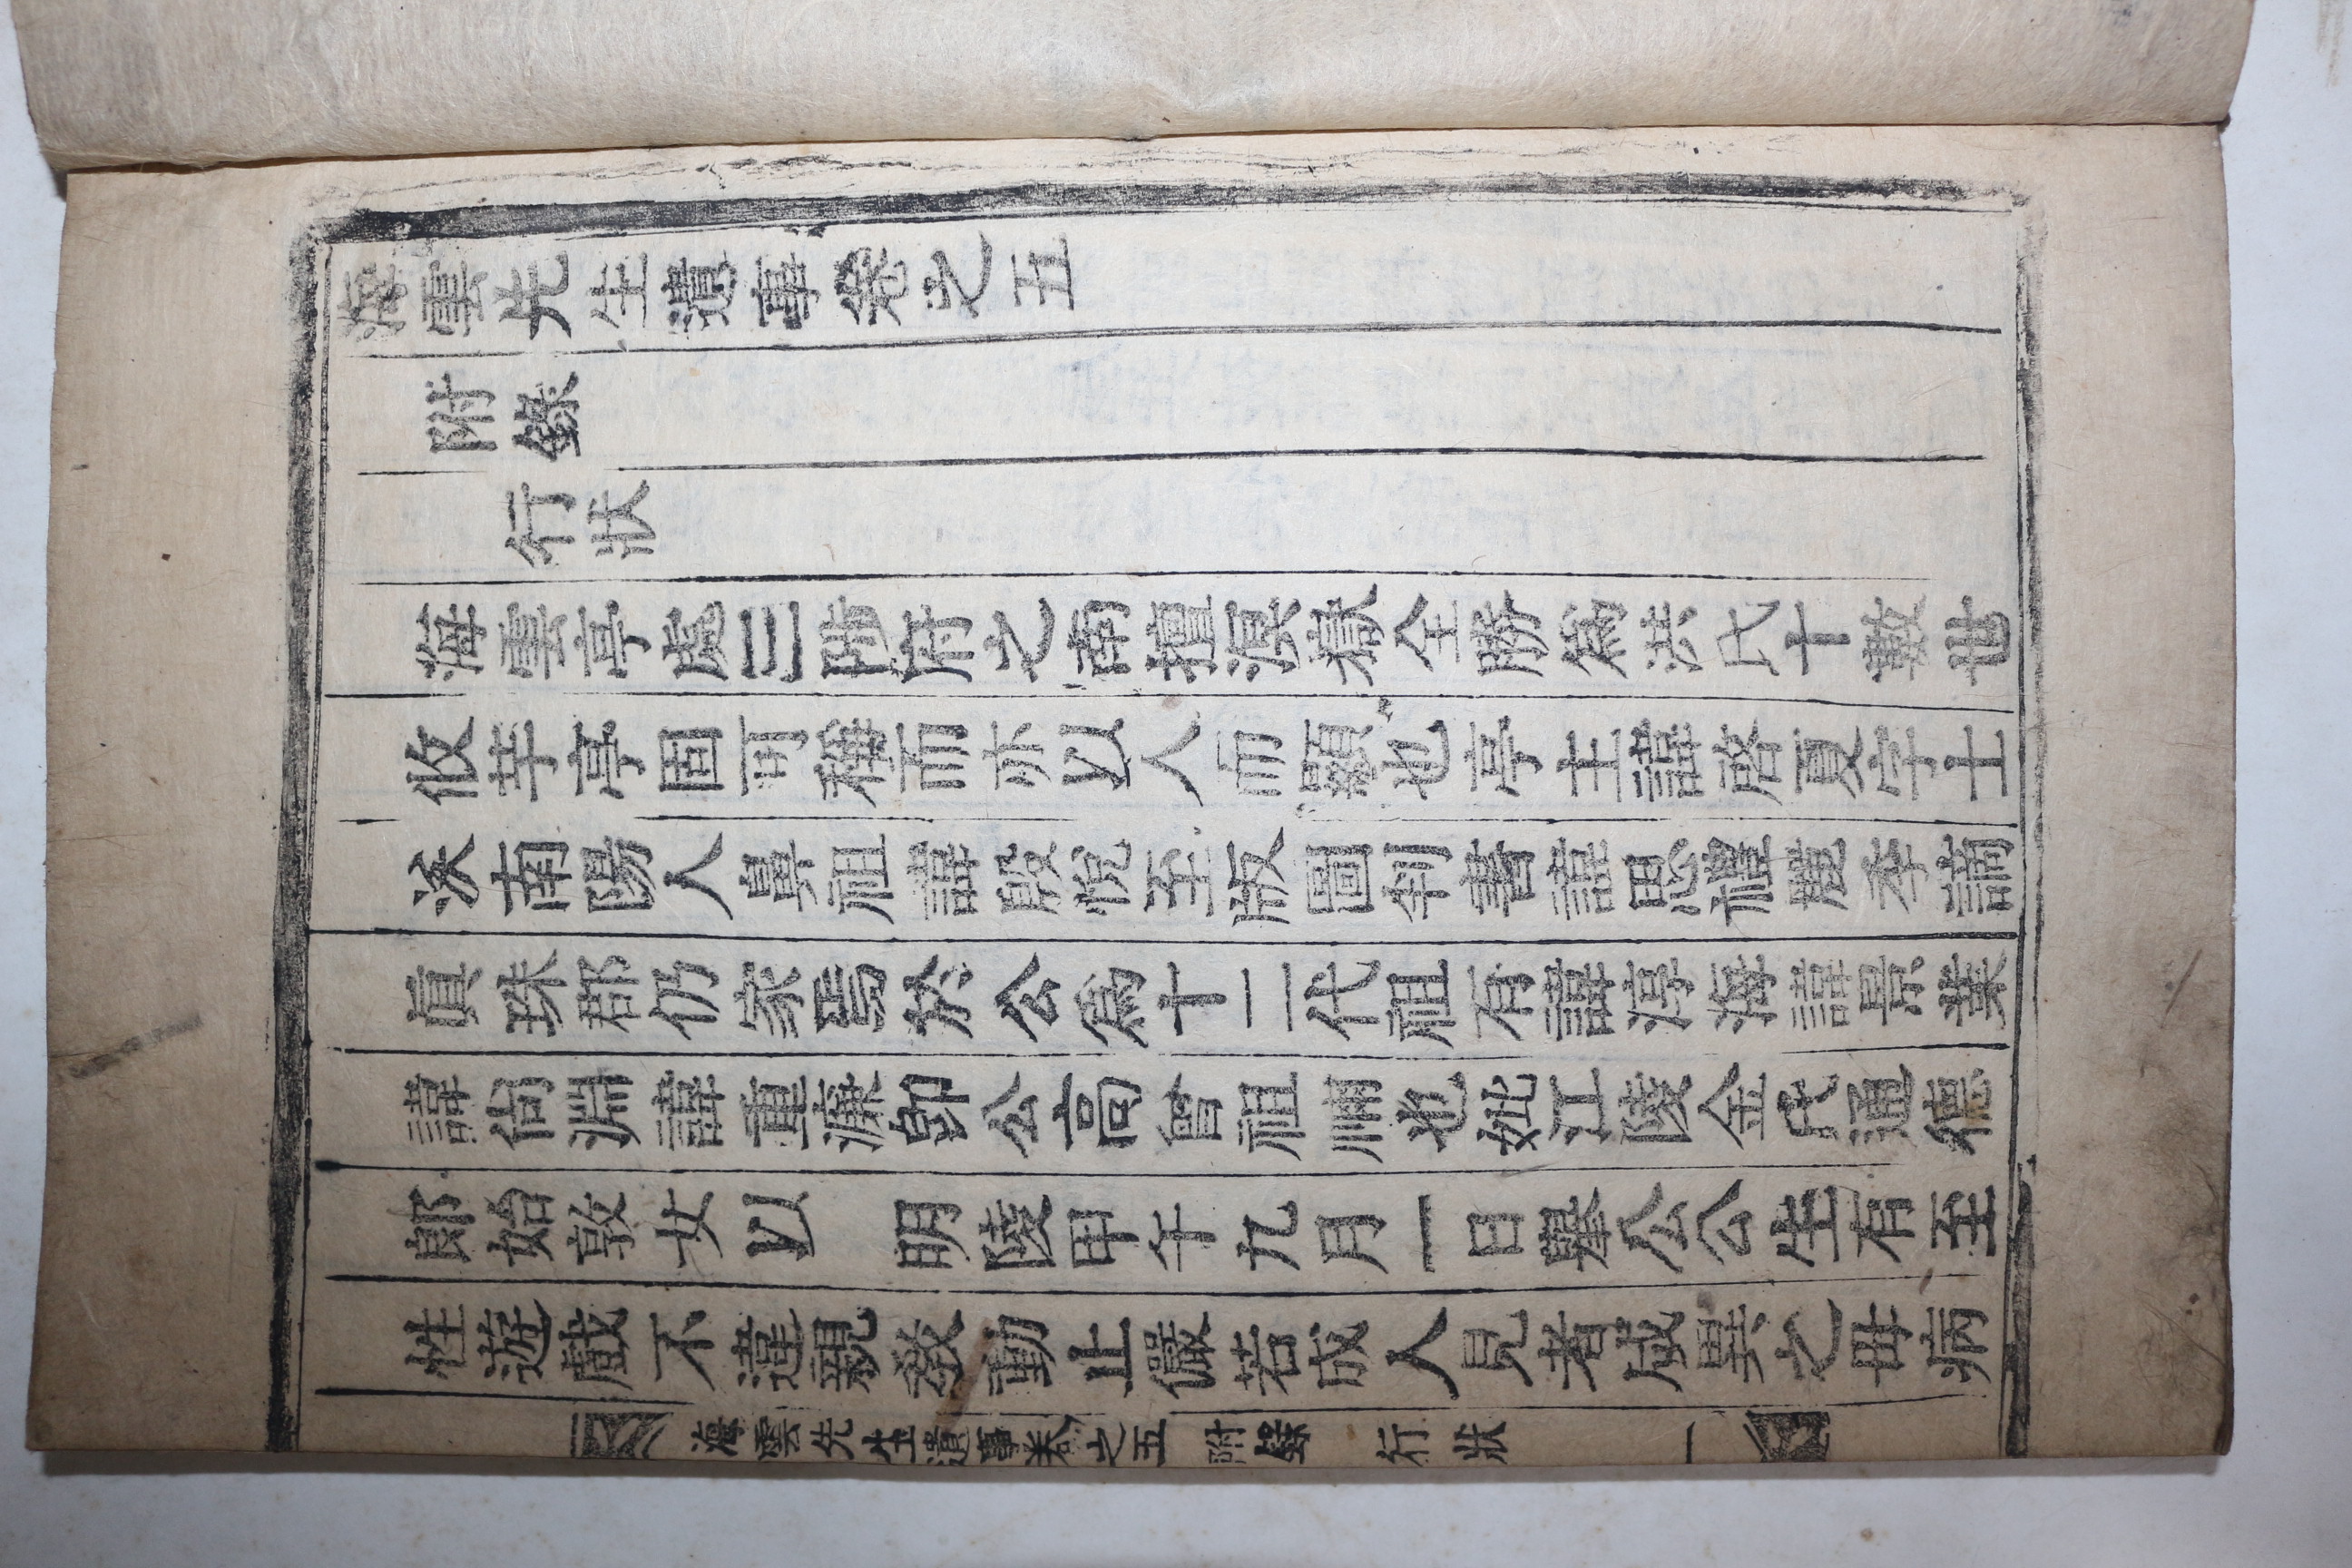 海雲先生遺事卷之五
附錄
行狀
海雲亭處三陟府之南擅溟嶽全勝爲洪氏十數世
攸芋亭固可稱而亦以人而顯也亭主諱啓夏字士
沃南陽人鼻祖諱殷悅至版圖判書諱思禮麗季謫
眞珠郡仍家焉於公爲十二代祖有諱淳海諱景業
諱尙淵諱重濂卽公高曾祖禰也妣江陵金氏通德
郞始敦女以 明陵甲午九月一日擧公公生有至
性遊戱不違親敎動止儼若成人見者咸異之母病
海雲先生遺事卷之五 附錄 行狀 一